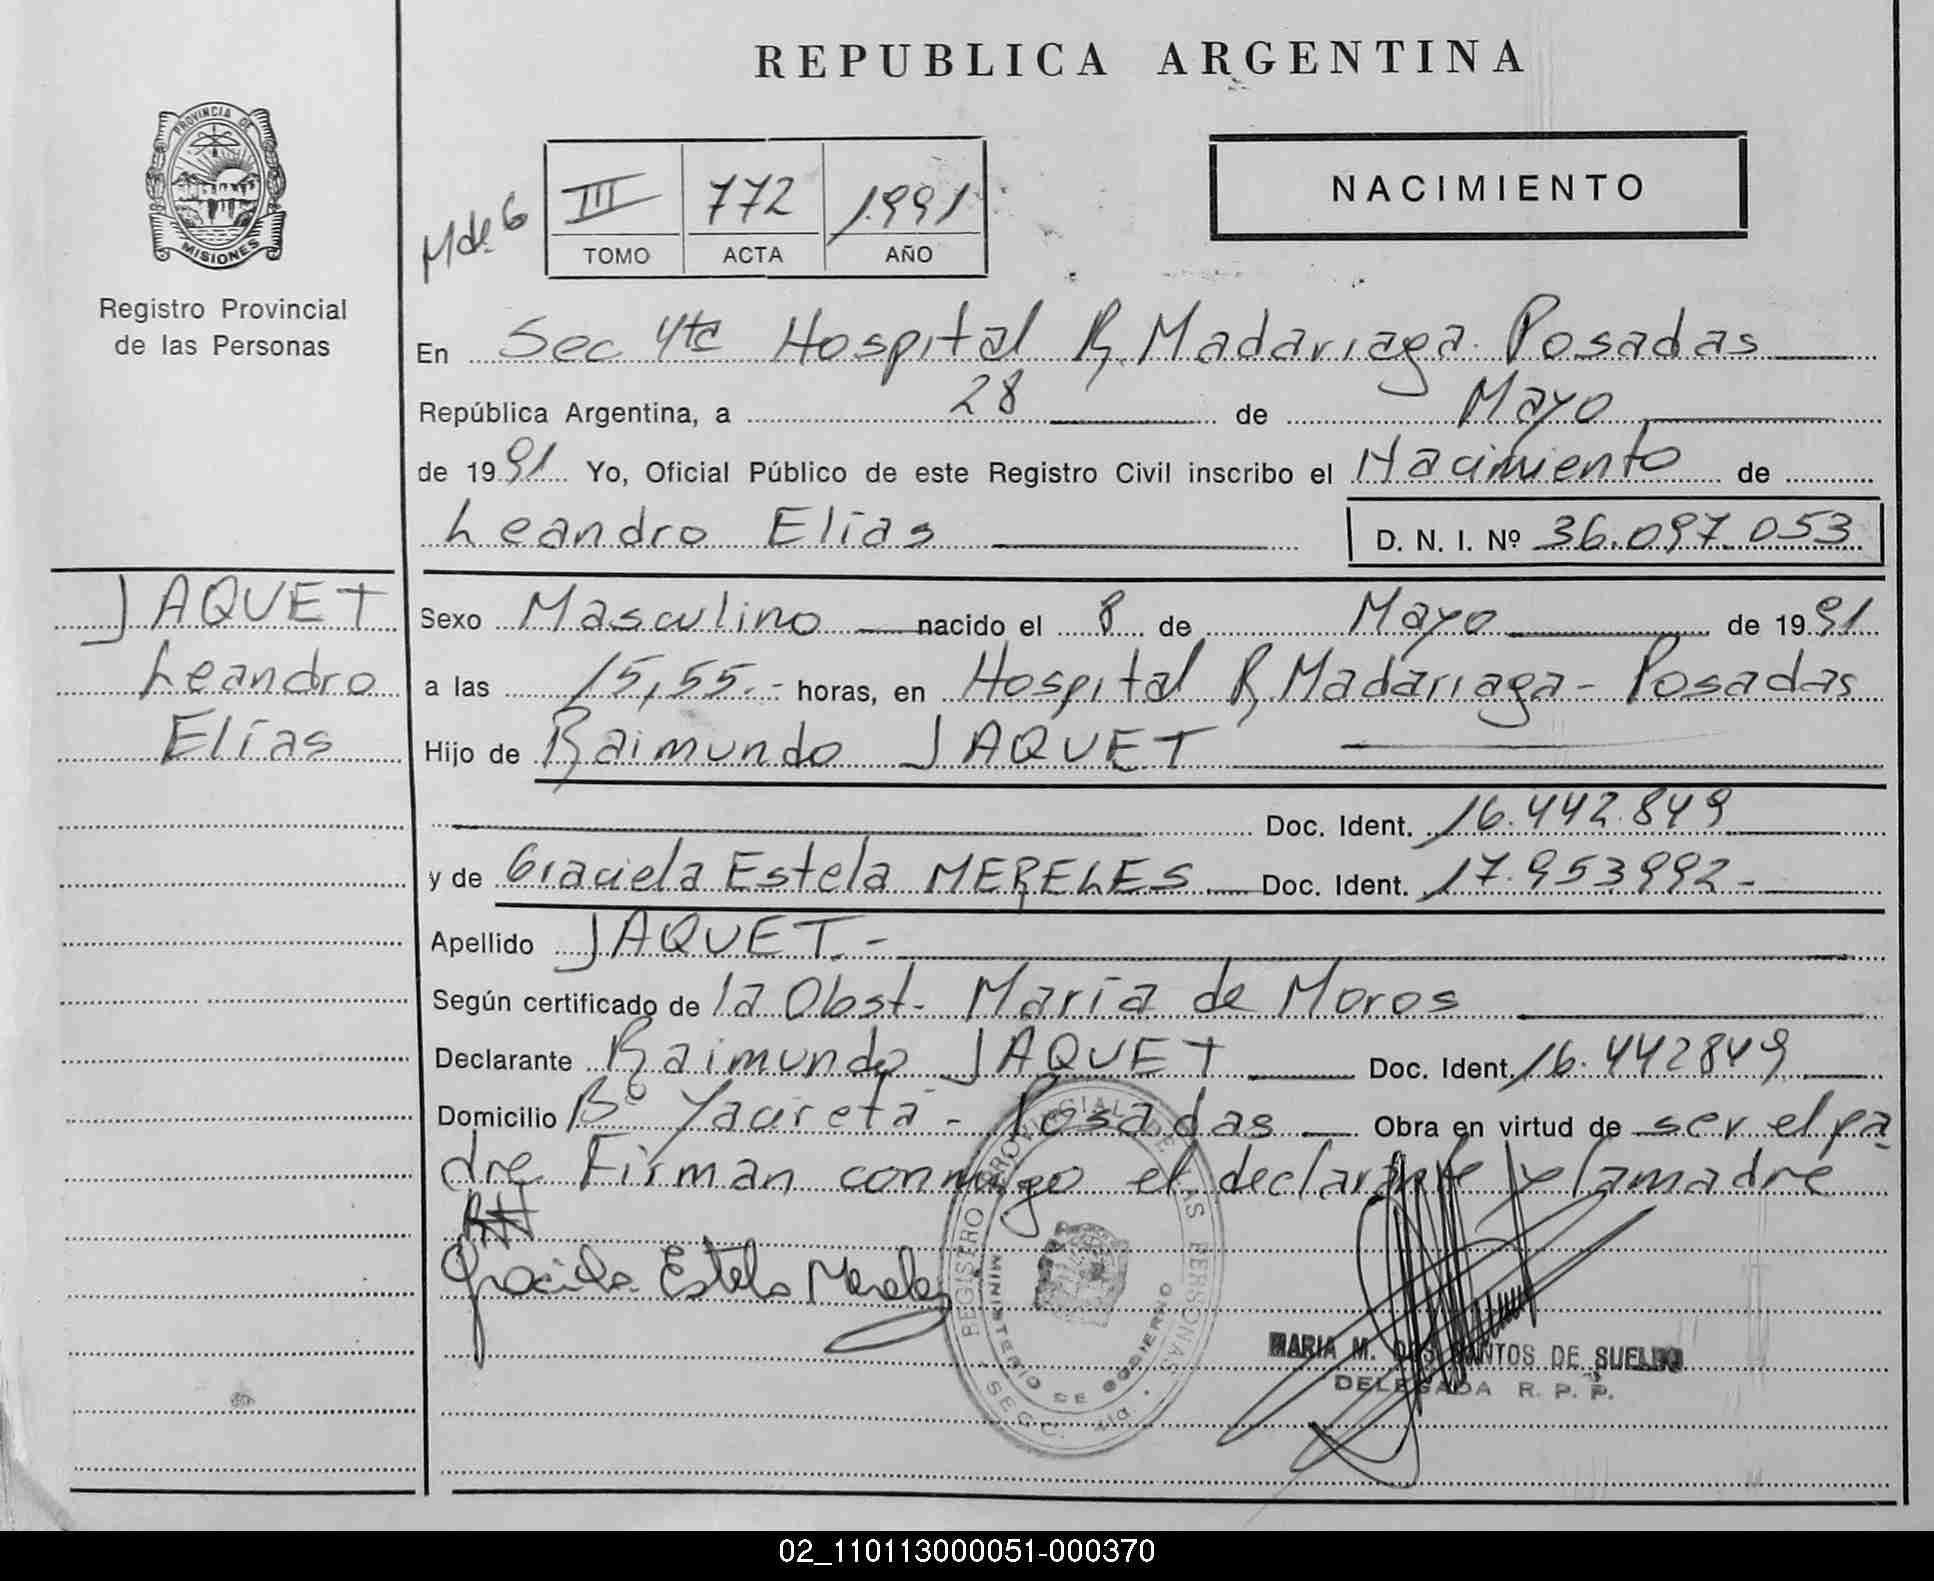 REPUBLICA ARGENTINA
PROVINCIA DE
MISIONES
Registro Provincial
de las Personas
NACIMIENTO
III 772 1991
TOMO ACTA AÑO
En Sec 4ta Hospital R. Madariaga. Posadas
República Argentina, a 28 de Mayo
de 1991 Yo, Oficial Público de este Registro Civil inscribo el Nacimiento de
Leandro Elías
D. N. I. Nº 36.097.053
JAQUET
Leandro
Elías
Sexo Masculino nacido el 8 de Mayo de 1991
a las 15,55.- horas, en Hospital R. Madariaga - Posadas
Hijo de Raimundo JAQUET
Doc. Ident. 16.442.849
y de Graciela Estela MERELES Doc. Ident. 17.953992-
Apellido JAQUET.-
Según certificado de la Obst. María de Moros
Declarante Raimundo JAQUET Doc. Ident. 16.442849
Domicilio Bº Yacireta - Posadas Obra en virtud de ser el pa
dre Firman conmigo el declarante y la madre
Graciela Estela Mereles
REGISTRO PROVINCIAL DE LAS PERSONAS
MINISTERIO DE GOBIERNO
SEC. 4ta.
MARIA M. DOS SANTOS DE SUELDO
DELEGADA R. P. P.
02_110113000051-000370